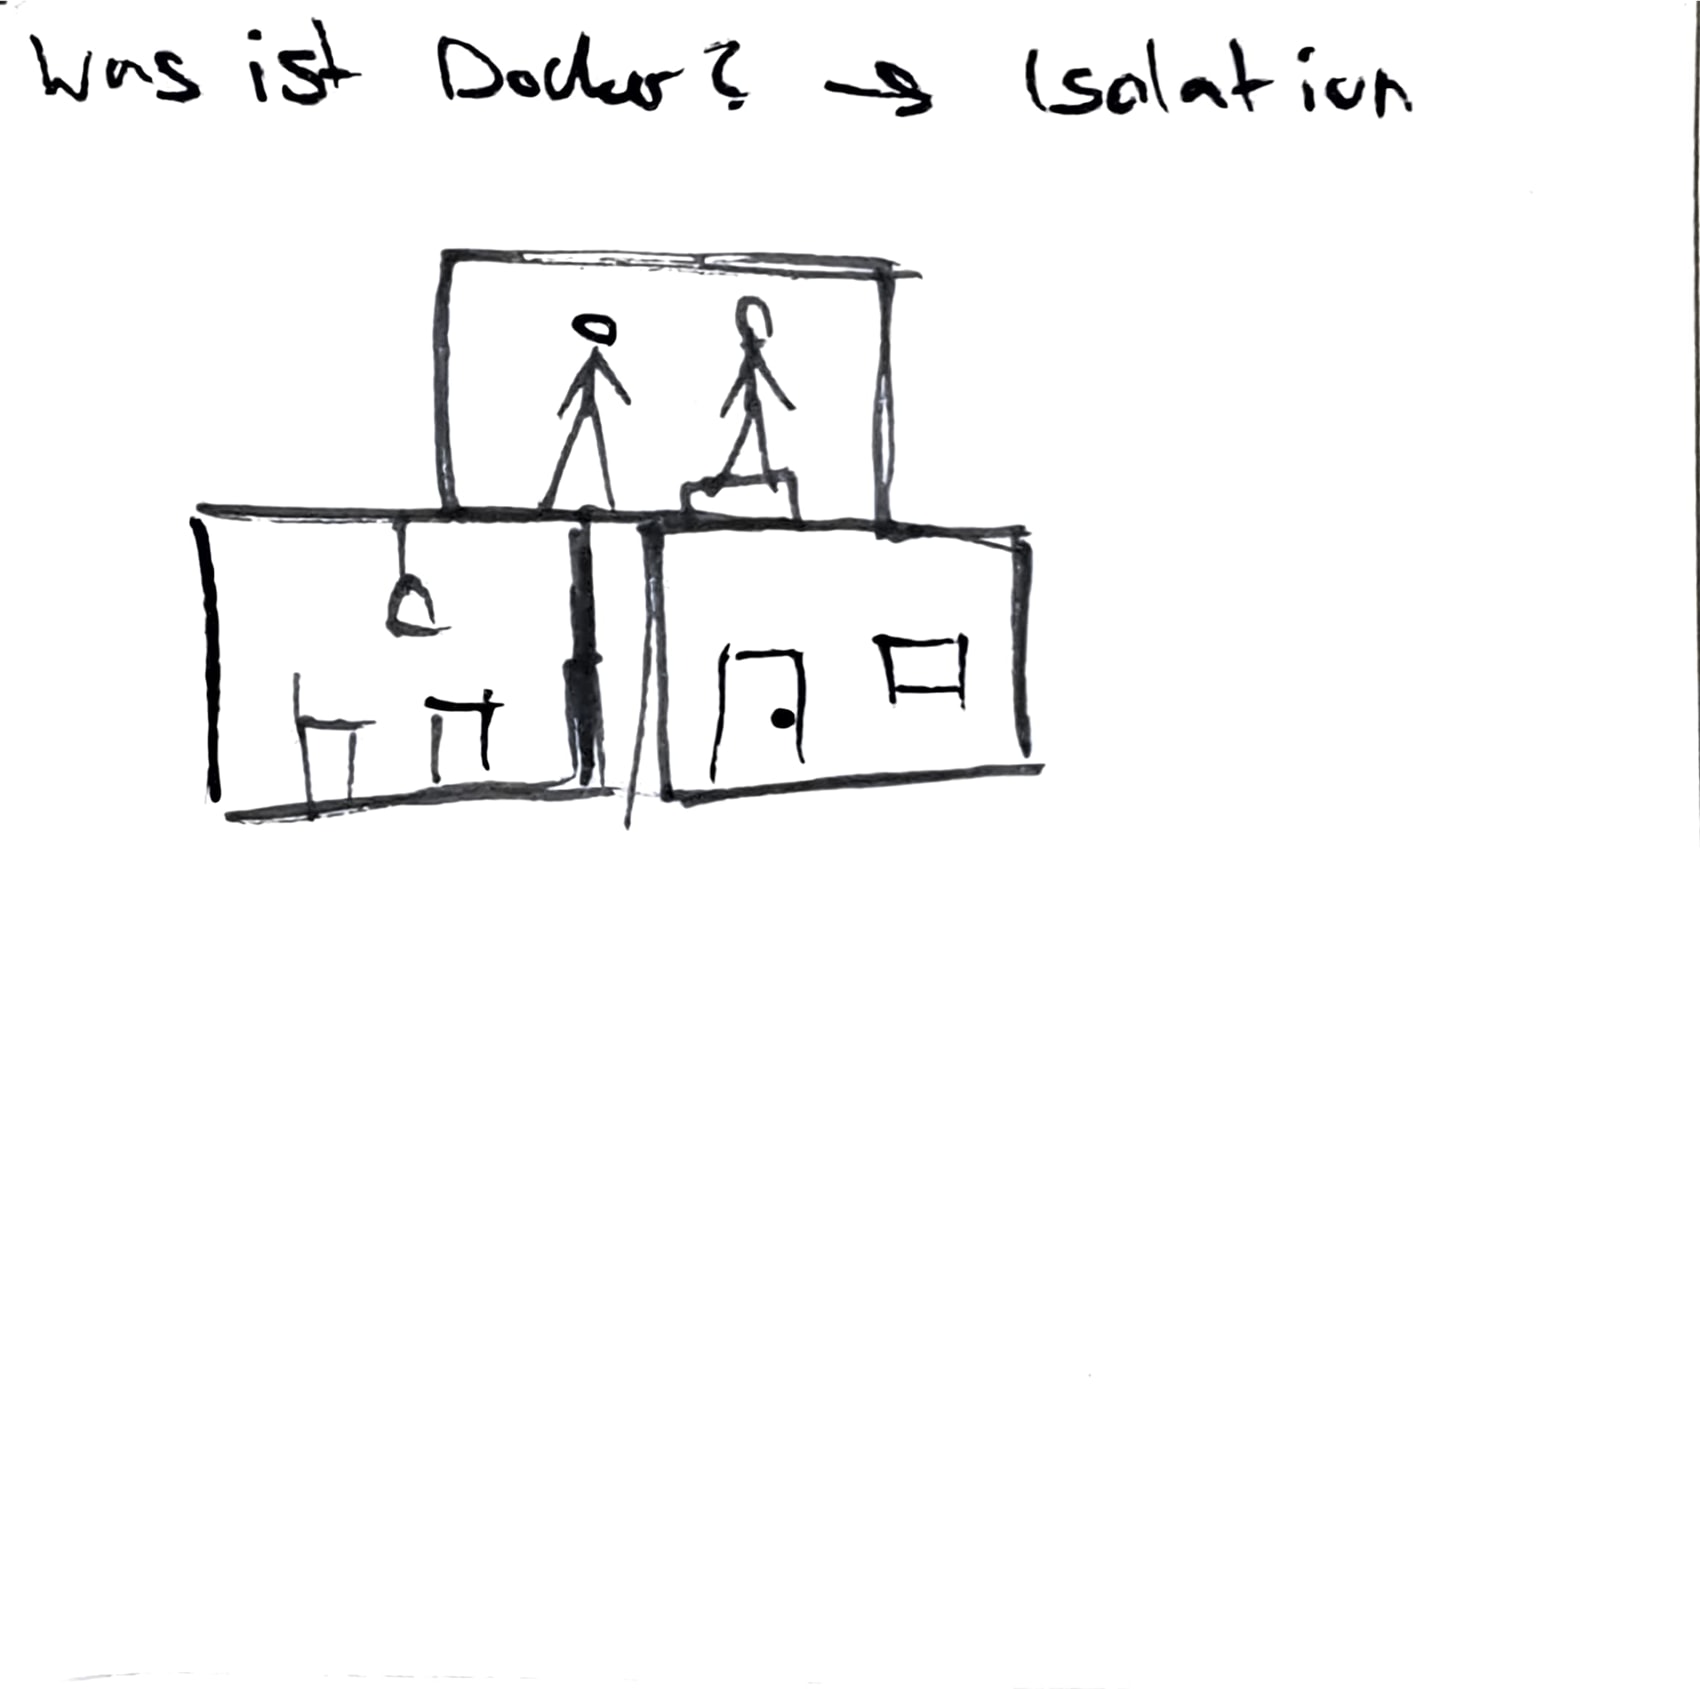 Was ist Docker? → Isolation